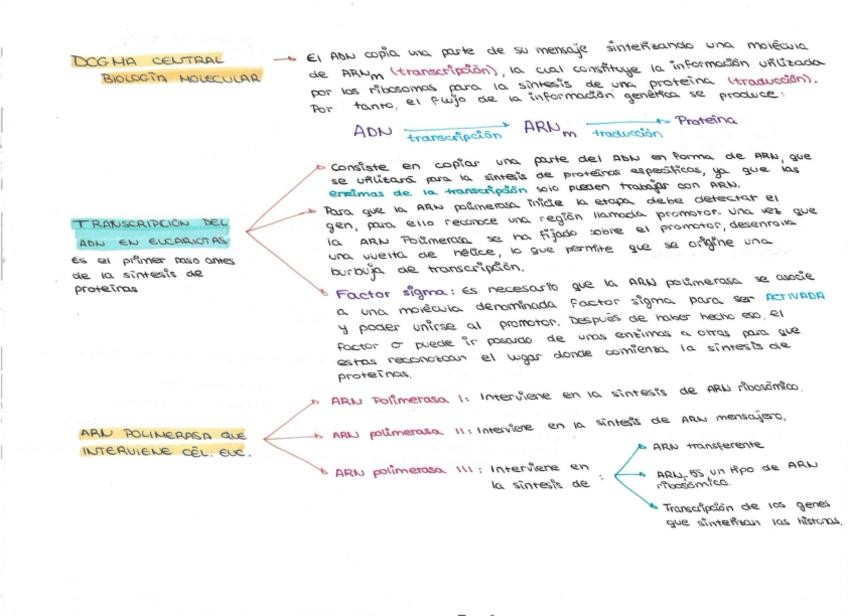 DOGMA CENTRAL
BIOLOGÍA MOLECULAR
El ADN copia una parte de su mensaje sintetizando una molécula
de ARNm (transcripción), la cual constituye la información utilizada
por los ribosomas para la síntesis de una proteína (traducción).
Por tanto, el flujo de la información genética se produce:
ADN transcripción ARNm traducción Proteína
TRANSCRIPCIÓN DEL
ADN EN EUCARIOTAS
Es el primer paso antes
de la síntesis de
proteínas
Consiste en copiar una parte del ADN en forma de ARN, que
se utilizará para la síntesis de proteínas específicas, ya que las
enzimas de la transcripción solo pueden trabajar con ARN.
Para que la ARN polimerasa inicie la etapa debe detectar el
gen, para ello reconoce una región llamada promotor. Una vez que
la ARN Polimerasa se ha fijado sobre el promotor, desenrolla
una vuelta de hélice, lo que permite que se origine una
burbuja de transcripción.
Factor sigma: Es necesario que la ARN polimerasa se asocie
a una molécula denominada factor sigma para ser ACTIVADA
y poder unirse al promotor. Después de haber hecho eso, el
factor σ puede ir pasando de unas enzimas a otras para que
estas reconozcan el lugar donde comienza la síntesis de
proteínas.
ARN POLIMERASA QUE
INTERVIENE CÉL. EUC.
ARN Polimerasa I: Interviene en la síntesis de ARN ribosómico.
ARN polimerasa II: Interviene en la síntesis de ARN mensajero.
ARN polimerasa III: Interviene en
la síntesis de :
ARN transferente
ARN, 5S un tipo de ARN
ribosómico.
Transcripción de los genes
que sintetizan las histonas.